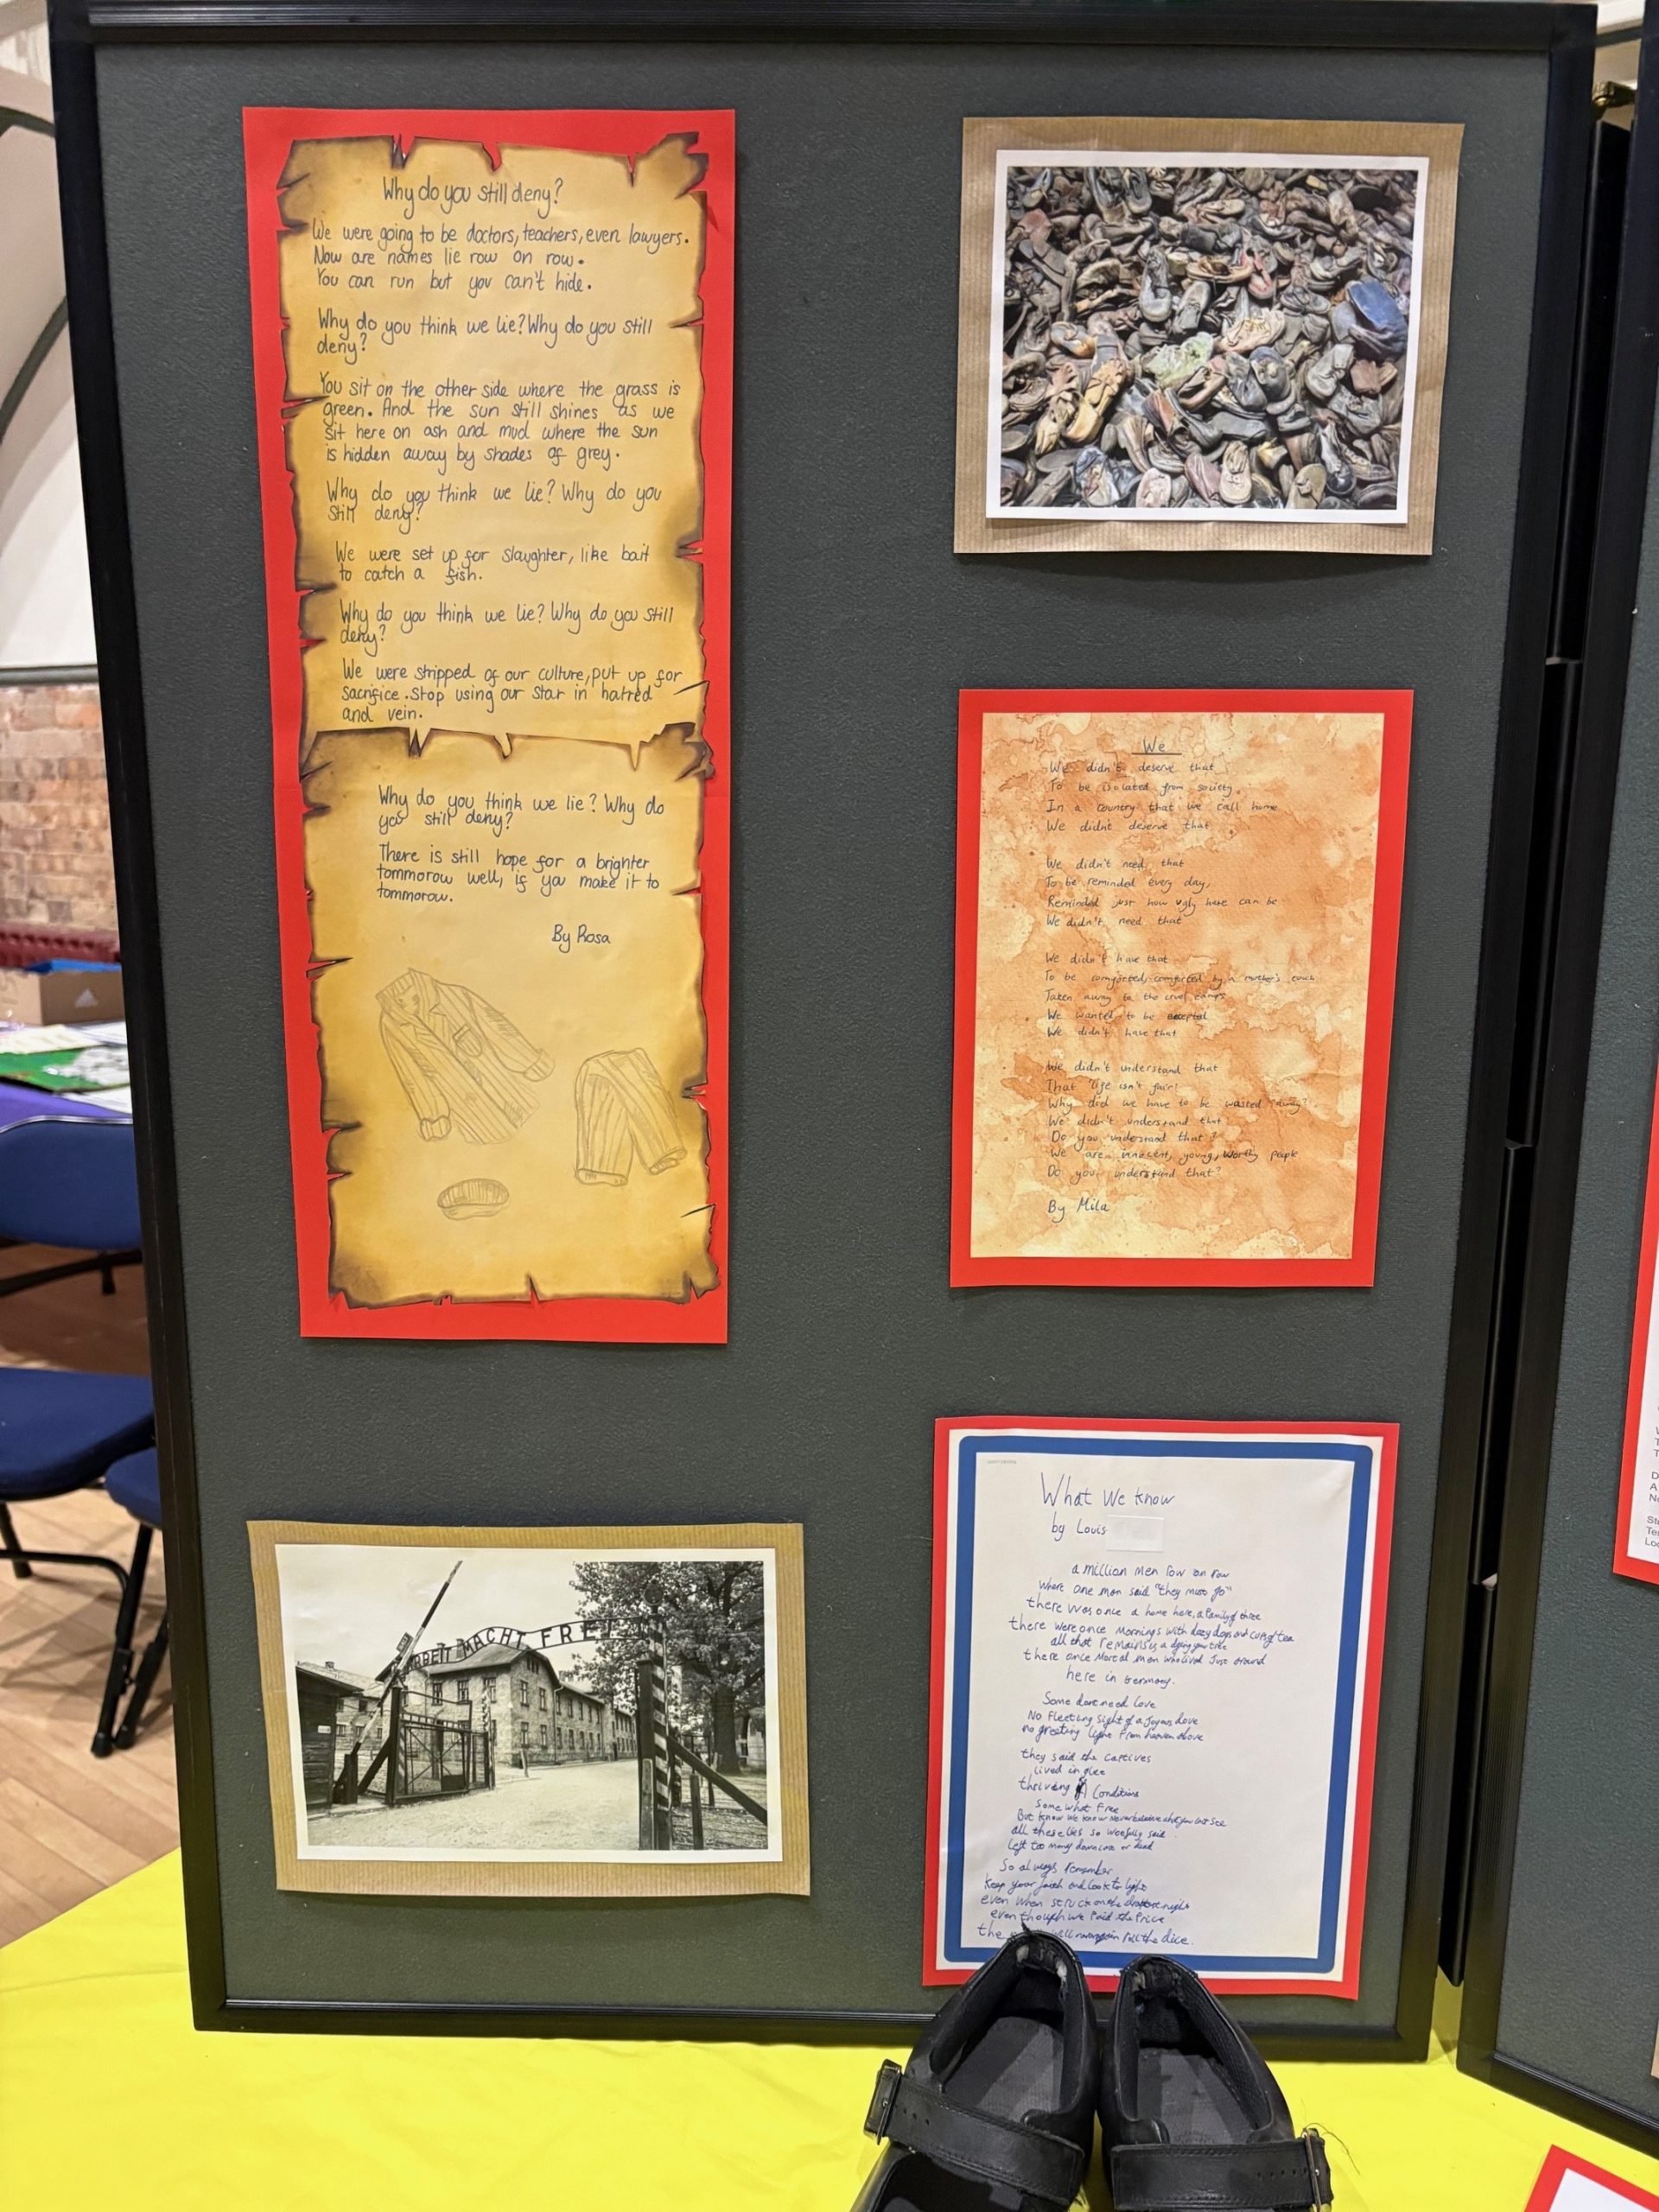 Why do you still deny?
We were going to be doctors, teachers, even lawyers.
Now are names lie row on row.
You can run but you can't hide.
Why do you think we lie? Why do you still
deny?
You sit on the other side where the grass is
green. And the sun still shines as we
sit here on ash and mud where the sun
is hidden away by shades of grey.
Why do you think we lie? Why do you
still deny?
We were set up for slaughter, like bait
to catch a fish.
Why do you think we lie? Why do you still
deny?
We were stripped of our culture, put up for
sacrifice. Stop using our star in hatred
and vein.
Why do you think we lie? Why do
you still deny?
There is still hope for a brighter
tommorow well, if you make it to
tommorow.
By Rosa
ARBEIT MACHT FREI
We
We didn't deserve that
To be isolated from society
In a country that we call home
We didn't deserve that
We didn't need that
To be reminded every day,
Reminded just how ugly hate can be
We didn't need that
We didn't have that
To be comforted, comforted by a mother's touch
Taken away to the cruel camps
We wanted to be accepted
We didn't have that
We didn't understand that
That 'life isn't fair'
Why did we have to be wasted away?
We didn't understand that
Do you understand that?
We are innocent, young, worthy people
Do you understand that?
By Mila
What We know
by Louis
a million men row on row
Where one man said "they must go"
there was once a home here, a family of three
there were once mornings with dogs and cups of tea
all that remains is a dying tree
there once men who lived Just around
here in Germany.
Some dare need love
No fleeting sight of a joyous dove
no greeting light from heaven above
they said the captives
lived in glee
thriving Conditions
Some what free
But know we know never believe what you can't see
all these lies so woefully said
left too many or dead
So always remember
keep your faith and look to light
even when struck on the night
even though we Paid the Price
the will roll the dice.